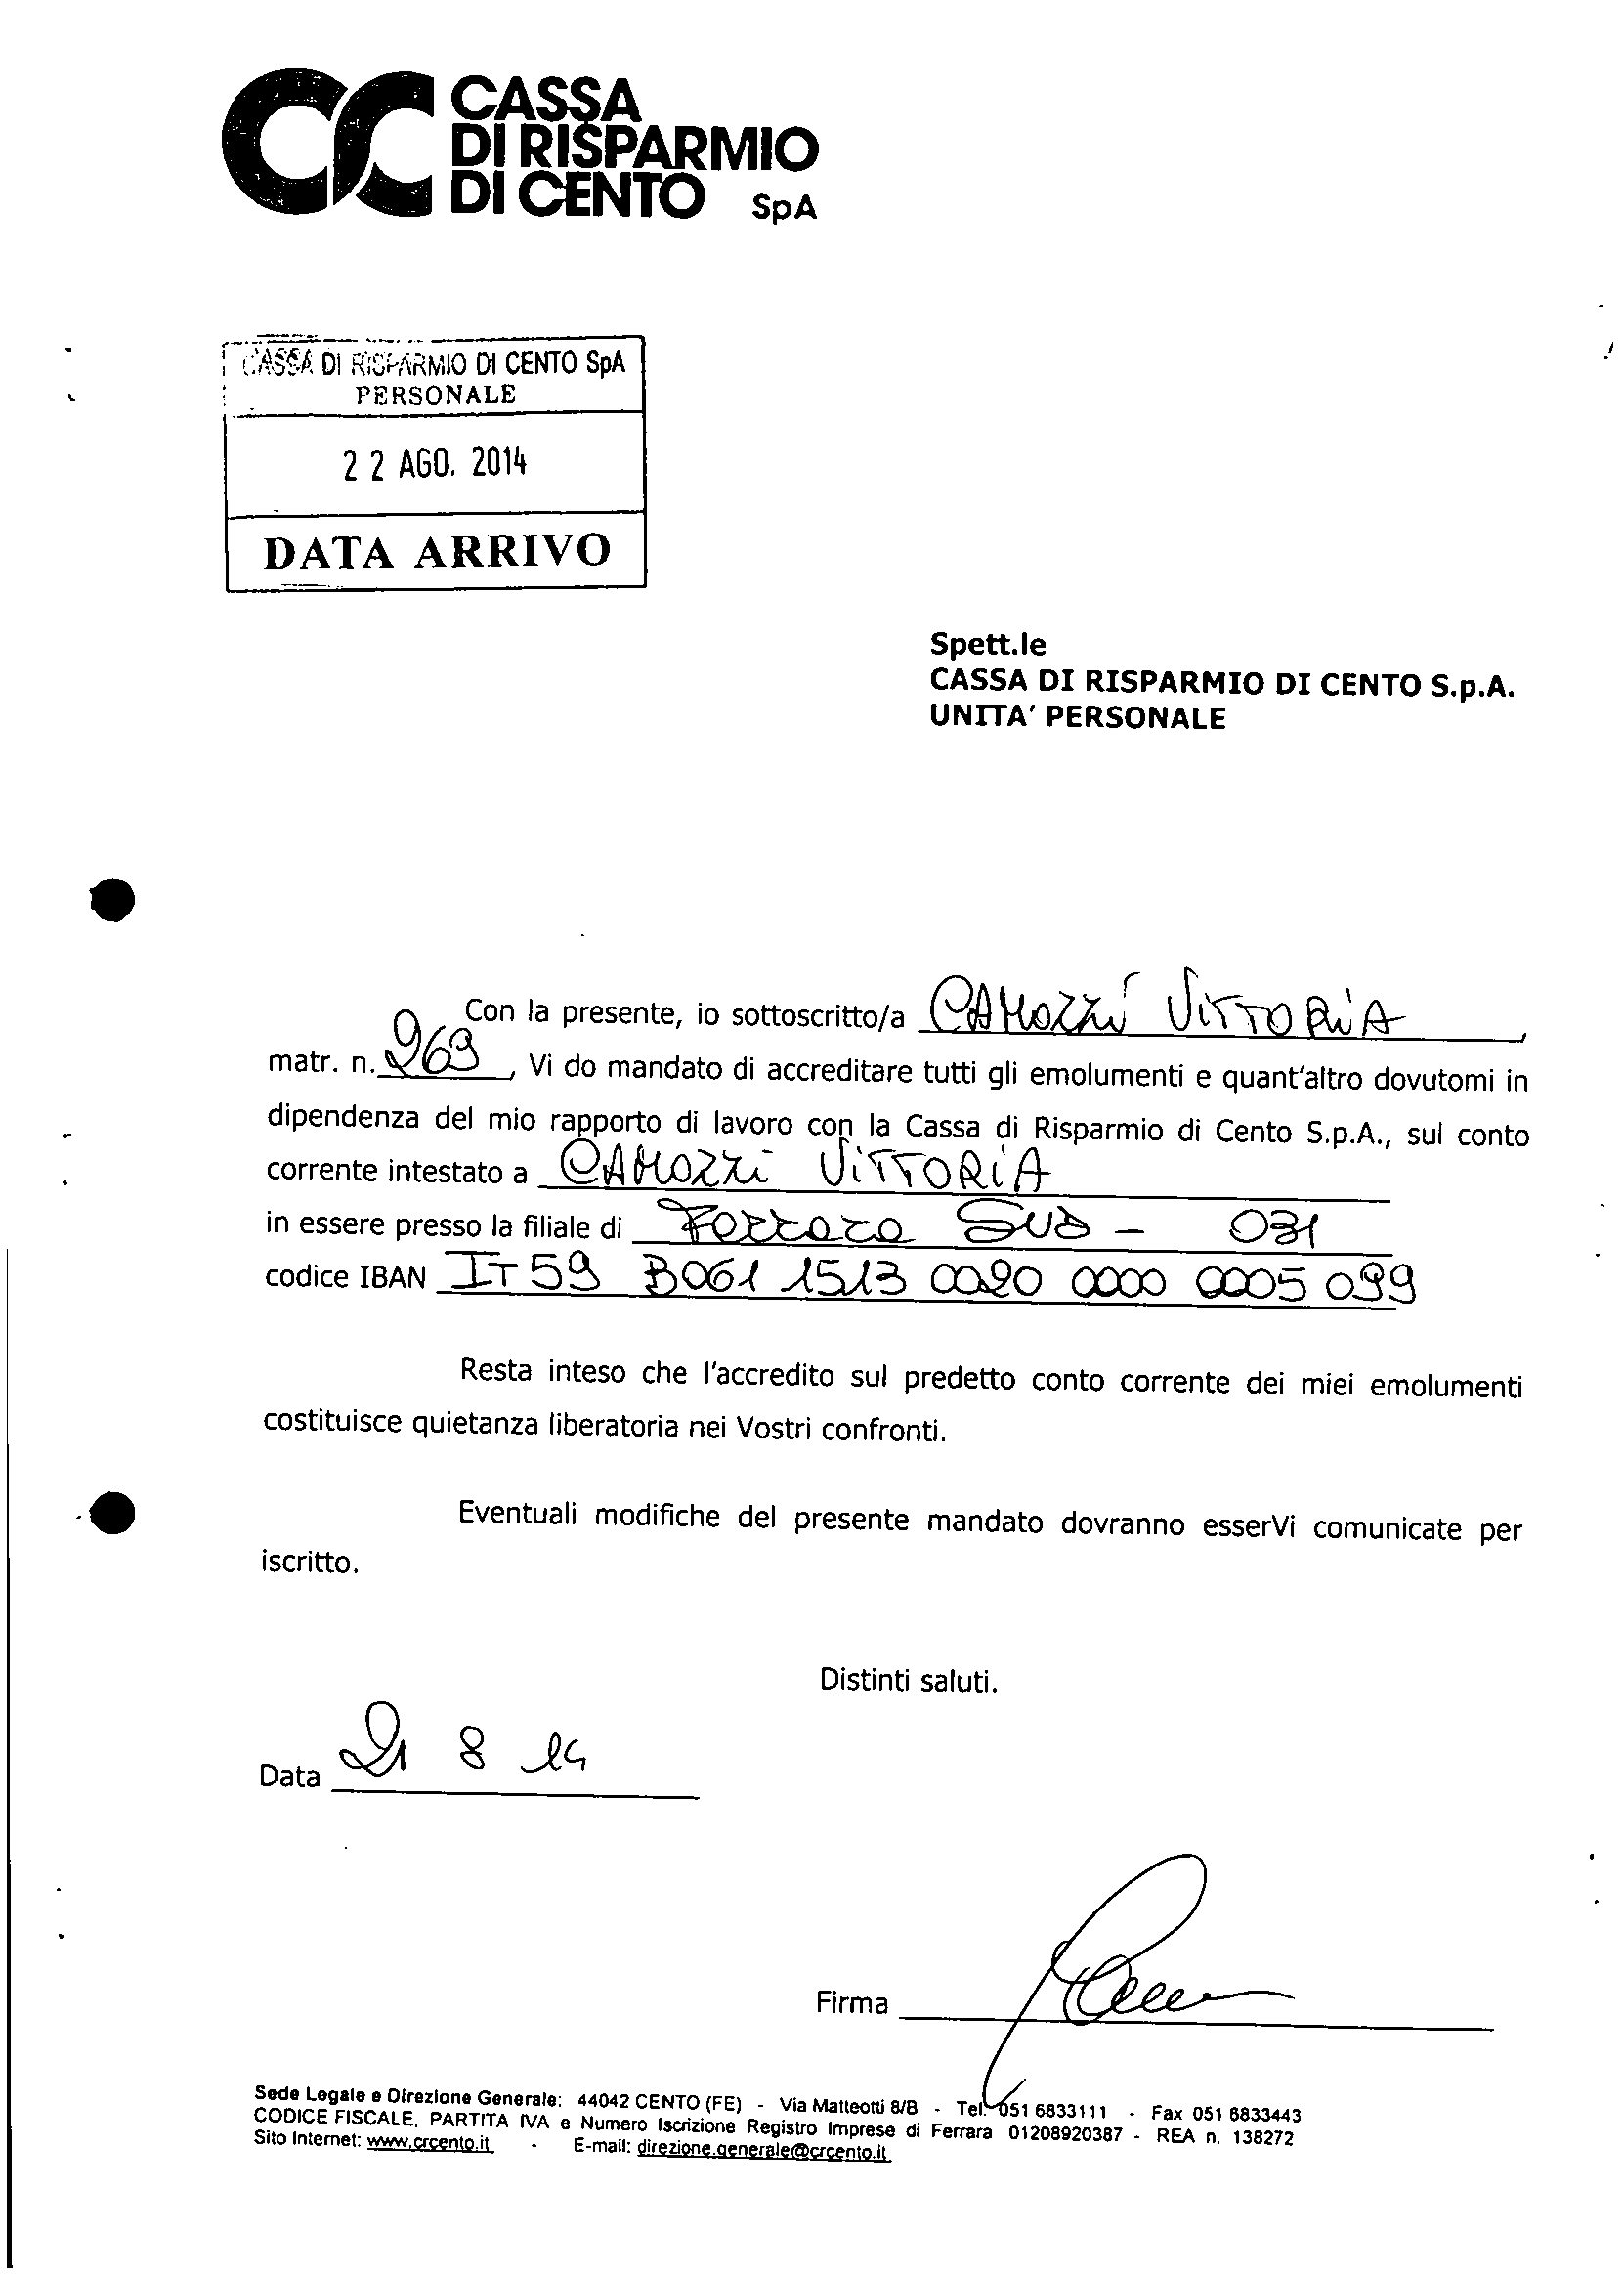 CASSA
DI RISPARMIO
DI CENTO SpA
CASSA DI RISPARMIO DI CENTO SpA
PERSONALE
22 AGO. 2014
DATA ARRIVO
Spett.le
CASSA DI RISPARMIO DI CENTO S.p.A.
UNITA' PERSONALE
Con la presente, io sottoscritto/a CAMOZZI VITTORIA,
matr. n. 969, Vi do mandato di accreditare tutti gli emolumenti e quant'altro dovutomi in
dipendenza del mio rapporto di lavoro con la Cassa di Risparmio di Cento S.p.A., sul conto
corrente intestato a CAMOZZI VITTORIA
in essere presso la filiale di Ferrara Sud - 031
codice IBAN IT59 B061 1513 0020 0000 0005 099
Resta inteso che l'accredito sul predetto conto corrente dei miei emolumenti
costituisce quietanza liberatoria nei Vostri confronti.
Eventuali modifiche del presente mandato dovranno esserVi comunicate per
iscritto.
Distinti saluti.
Data 21 8 14
Firma
Sede Legale e Direzione Generale: 44042 CENTO (FE) - Via Matteotti 8/B - Tel. 051 6833111 - Fax 051 6833443
CODICE FISCALE, PARTITA IVA e Numero Iscrizione Registro Imprese di Ferrara 01208920387 - REA n. 138272
Sito Internet: www.crcento.it - E-mail: direzione.generale@crcento.it